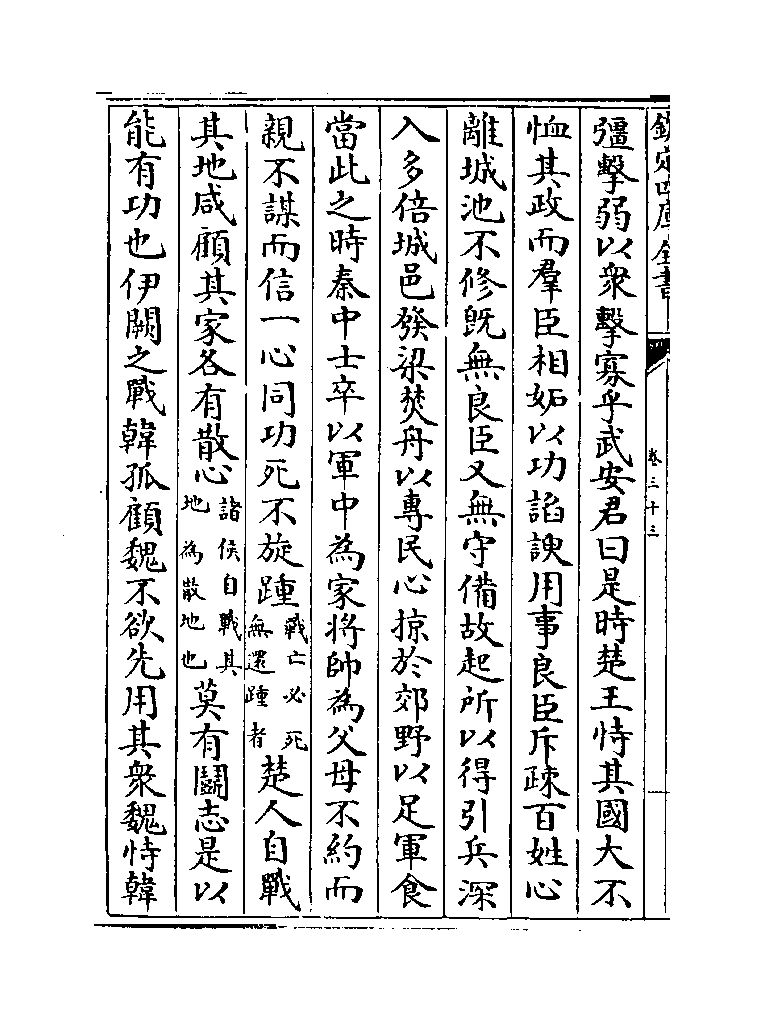 欽定四庫全書
卷三十三
彊擊弱以衆擊寡乎武安君曰是時楚王恃其國大不
恤其政而羣臣相妬以功謟諛用事良臣斥疎百姓心
離城池不修旣無良臣又無守備故起所以得引兵深
入多倍城邑發梁焚舟以專民心掠於郊野以足軍食
當此之時秦中士卒以軍中為家將帥為父母不約而
親不謀而信一心同功死不旋踵戰亡必死無還踵者楚人自戰
其地咸顧其家各有散心諸侯自戰其地為散地也莫有鬭志是以
能有功也伊闕之戰韓孤顧魏不欲先用其衆魏恃韓